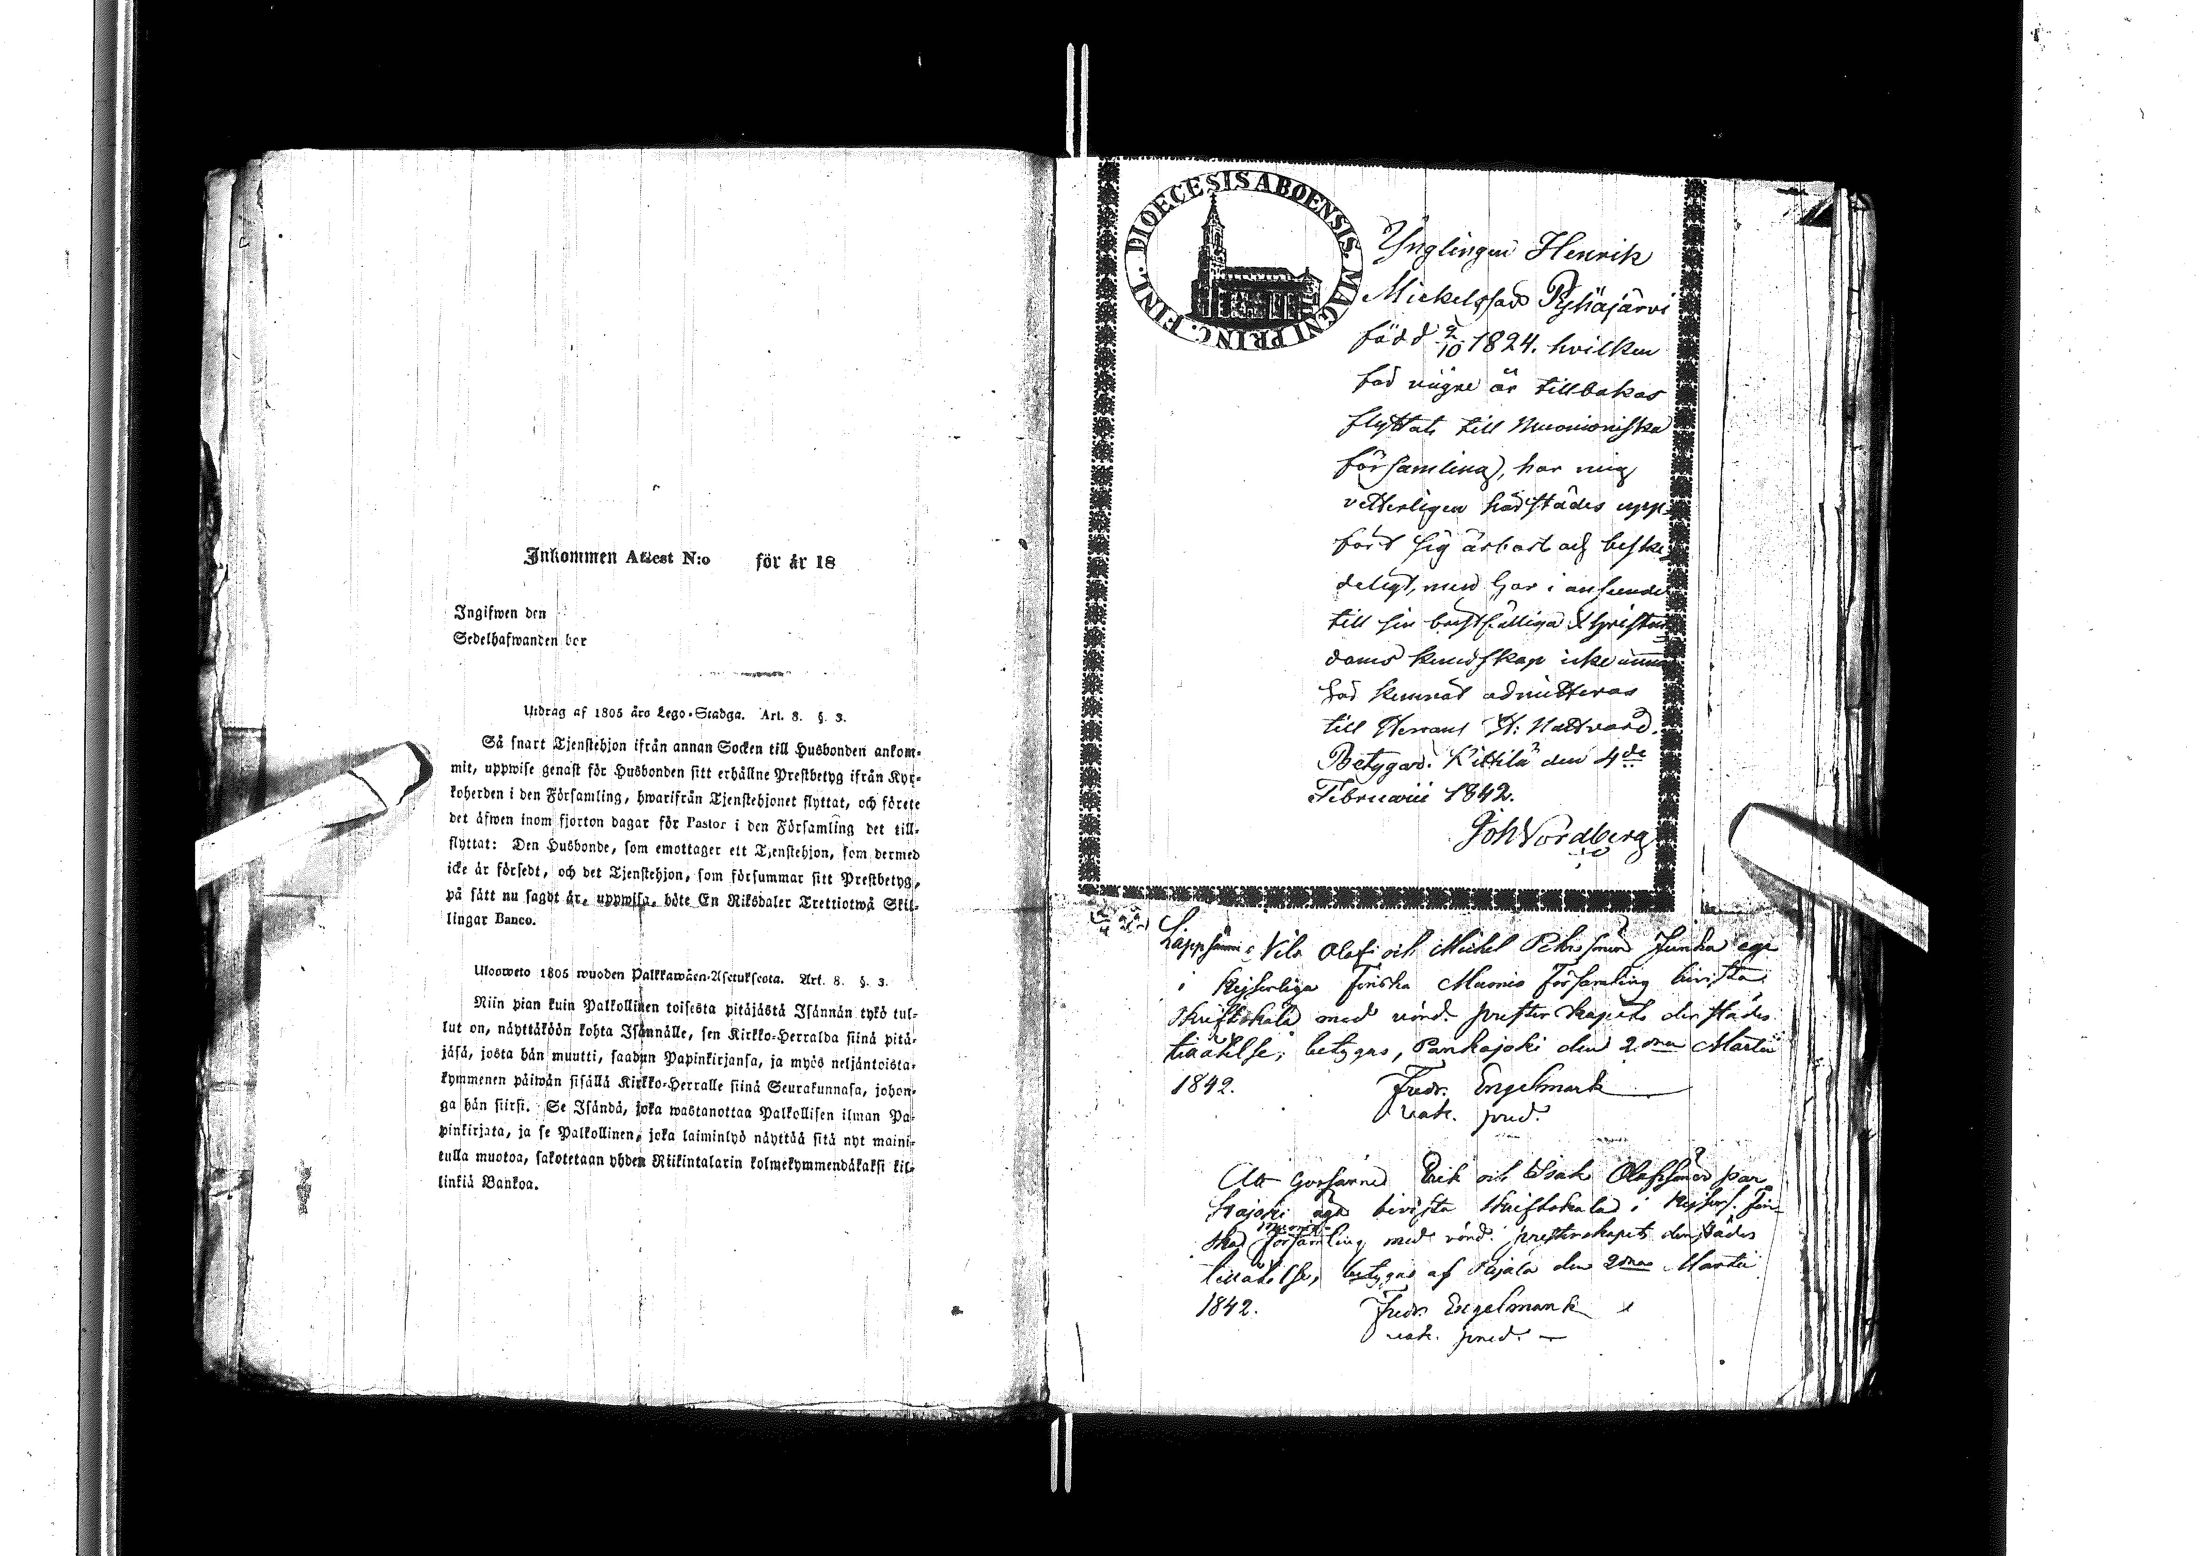 Inkommen Attest N:o för år 18
Ingifwen den
Sedelhafwanden bor
Utdrag af 1805 års Lego-Stadga. Art. 8. §. 3.
Så snart Tjenstehjon ifrån annan Socken till Husbonden ankom-
mit, uppwise genast för Husbonden sitt erhållne Prestbetyg ifrån Kyr-
koherden i den Församling, hwarifrån Tjenstehjonet flyttat, och förete
det äfwen inom fjorton dagar för Pastor i den Församling det till-
flyttat: Den Husbonde, som emottager ett Tjenstehjon, som dermed
icke är försedt, och det Tjenstehjon, som försummar sitt Prestbetyg,
på sätt nu sagdt är, uppwisa, böte En Riksdaler Trettiotwå Skil-
lingar Banco.
Ulosweto 1805 wuoden Palkkawäen-Asetuksesta. Art. 8. §. 3.
Niin pian kuin Palkollinen toisesta pitäjästä Isännän tykö tul-
lut on, näyttäköön kohta Isännälle, sen Kirkko-Herralda siinä pitä-
jäsä, josta hän muutti, saadun Papinkirjansa, ja myös neljäntoista-
kymmenen päiwän sisällä Kirkko-Herralle siinä Seurakunnasa, johon-
ga hän siirsi. Se Isändä, joka wastanottaa Palkollisen ilman Pa-
pinkirjata, ja se Palkollinen, joka laiminlyö näyttää sitä nyt maini-
tulla muotoa, sakotetaan yhden Riikintalarin kolmekymmendäkaksi kil-
linkiä Bankoa.
DIOECESIS ABOENSIS. MAGNI PRINC. FINL.
Ynglingen Henrik
Mickelsson Pyhäjärvi
född 9/10 1824. hvilken
för några år tillbakas
flyttat till Muonioniska
församling, har mig
vetterligen härstädes upp-
fört sig ärbart och beske-
deligt, men har i anseende
till sin bristfälliga Christen-
doms kundskap icke ännu
har kunnat admitteras
till Herrans H: Nattvard.
Betygar. Kittilä den 4de
Februarii 1842.
Joh Nordberg
Lappmän: Nils Olof och Michel Pehrssöner Junka ega
i Kejserliga finska Muonio församling bivista
Skriftskola med vörd. presterskapets derstädes
tillåtelse, betygas, Parkajoki den 2dra Martii
1842. Fredr. Engelmark
vak. pred.
Att Gossarne Erik och Isak Olofssöner Par
kajoki äga bivista Skriftskolan i Kejserl. Fin-
ska Muonio församling med vörd. presterskapets derstädes
tillåtelse, betygas af Pajala den 2dra Martii
1842. Fredr. Engelmark
vak. pred.